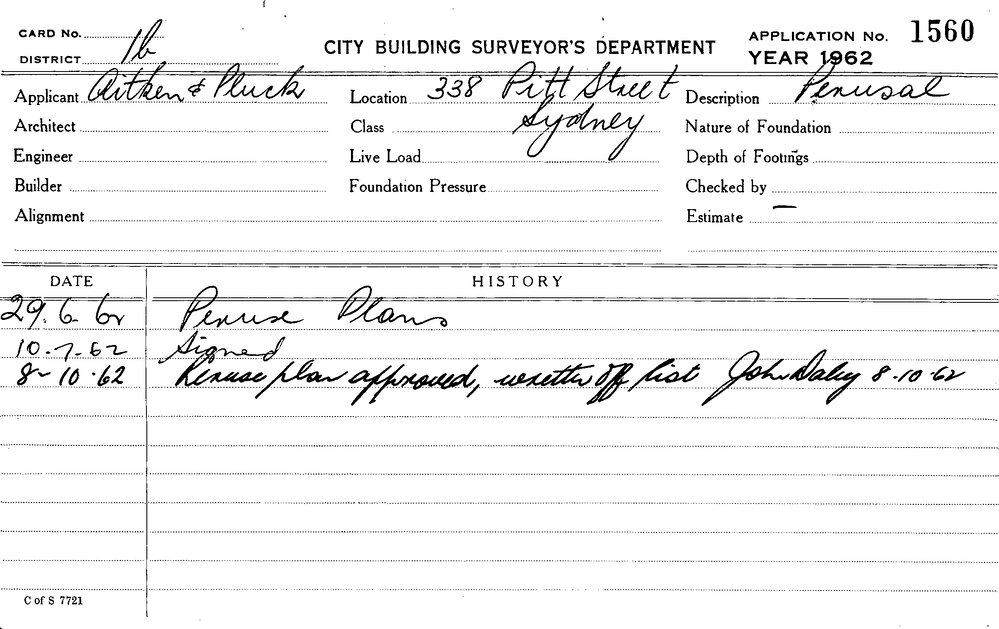 CARD No.
DISTRICT 1b
CITY BUILDING SURVEYOR'S DEPARTMENT
APPLICATION No. 1560
YEAR 1962
Applicant Aitken & Pluck Location 338 Pitt Street Description Perusal
Architect Class Sydney Nature of Foundation
Engineer Live Load Depth of Footings
Builder Foundation Pressure Checked by
Alignment Estimate —
DATE HISTORY
29.6.62 Peruse Plans
10.7.62 Signed
8-10.62 Peruse plan approved, written off list John Daley 8.10.62
C of S 7721